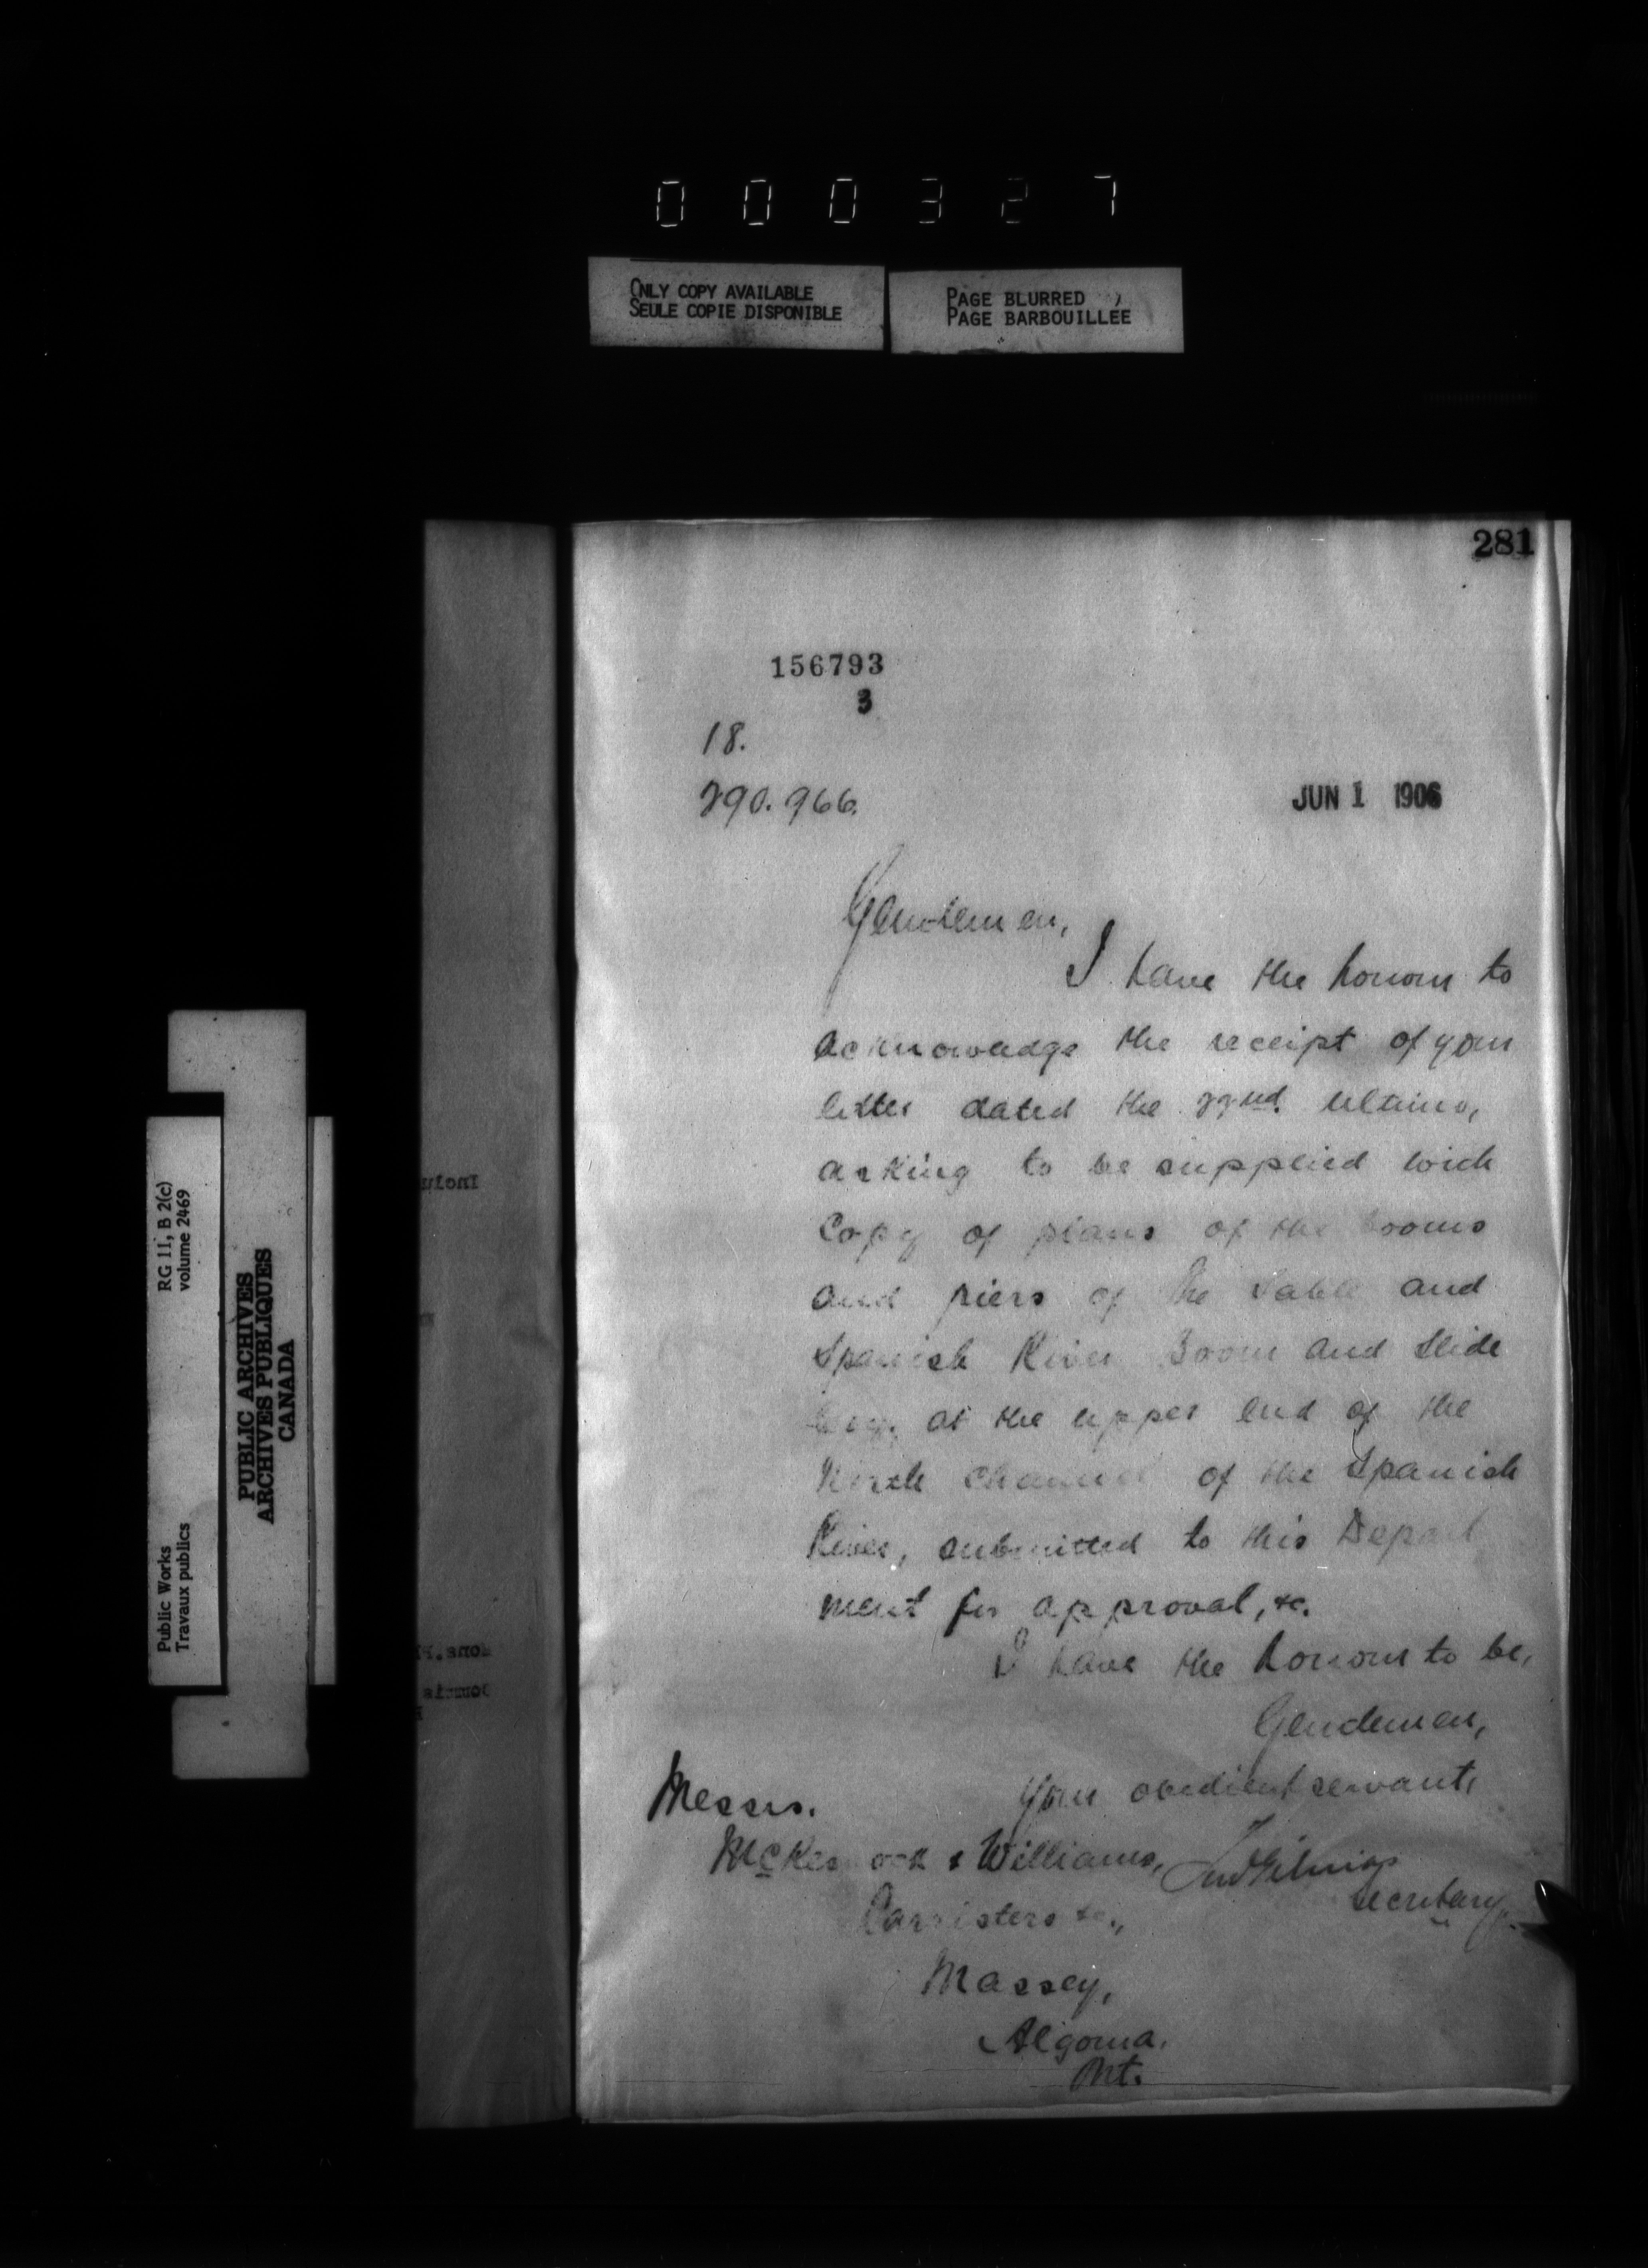 000327
ONLY COPY AVAILABLE
SEULE COPIE DISPONIBLE
PAGE BLURRED
PAGE BARBOUILLEE
281
156793
3
18.
290.966.
JUN 1 1906
Gentlemen,
I have the honour to
acknowledge the receipt of your
letter dated the 22nd ultimo,
asking to be supplied with
Copy of plans of the booms
and piers of the Sable and
Spanish River Boom and Slide
at the upper end of the
North Channel of the Spanish
River, submitted to this Depart
ment for approval, &c.
I have the honour to be,
Gentlemen,
Your obedient servant,
Secretary.
Messrs.
& Williams,
Barristers &c.,
Massey,
Algoma.
Ont.
RG 11, B 2(c)
volume 2469
PUBLIC ARCHIVES
ARCHIVES PUBLIQUES
CANADA
Public Works
Travaux publics